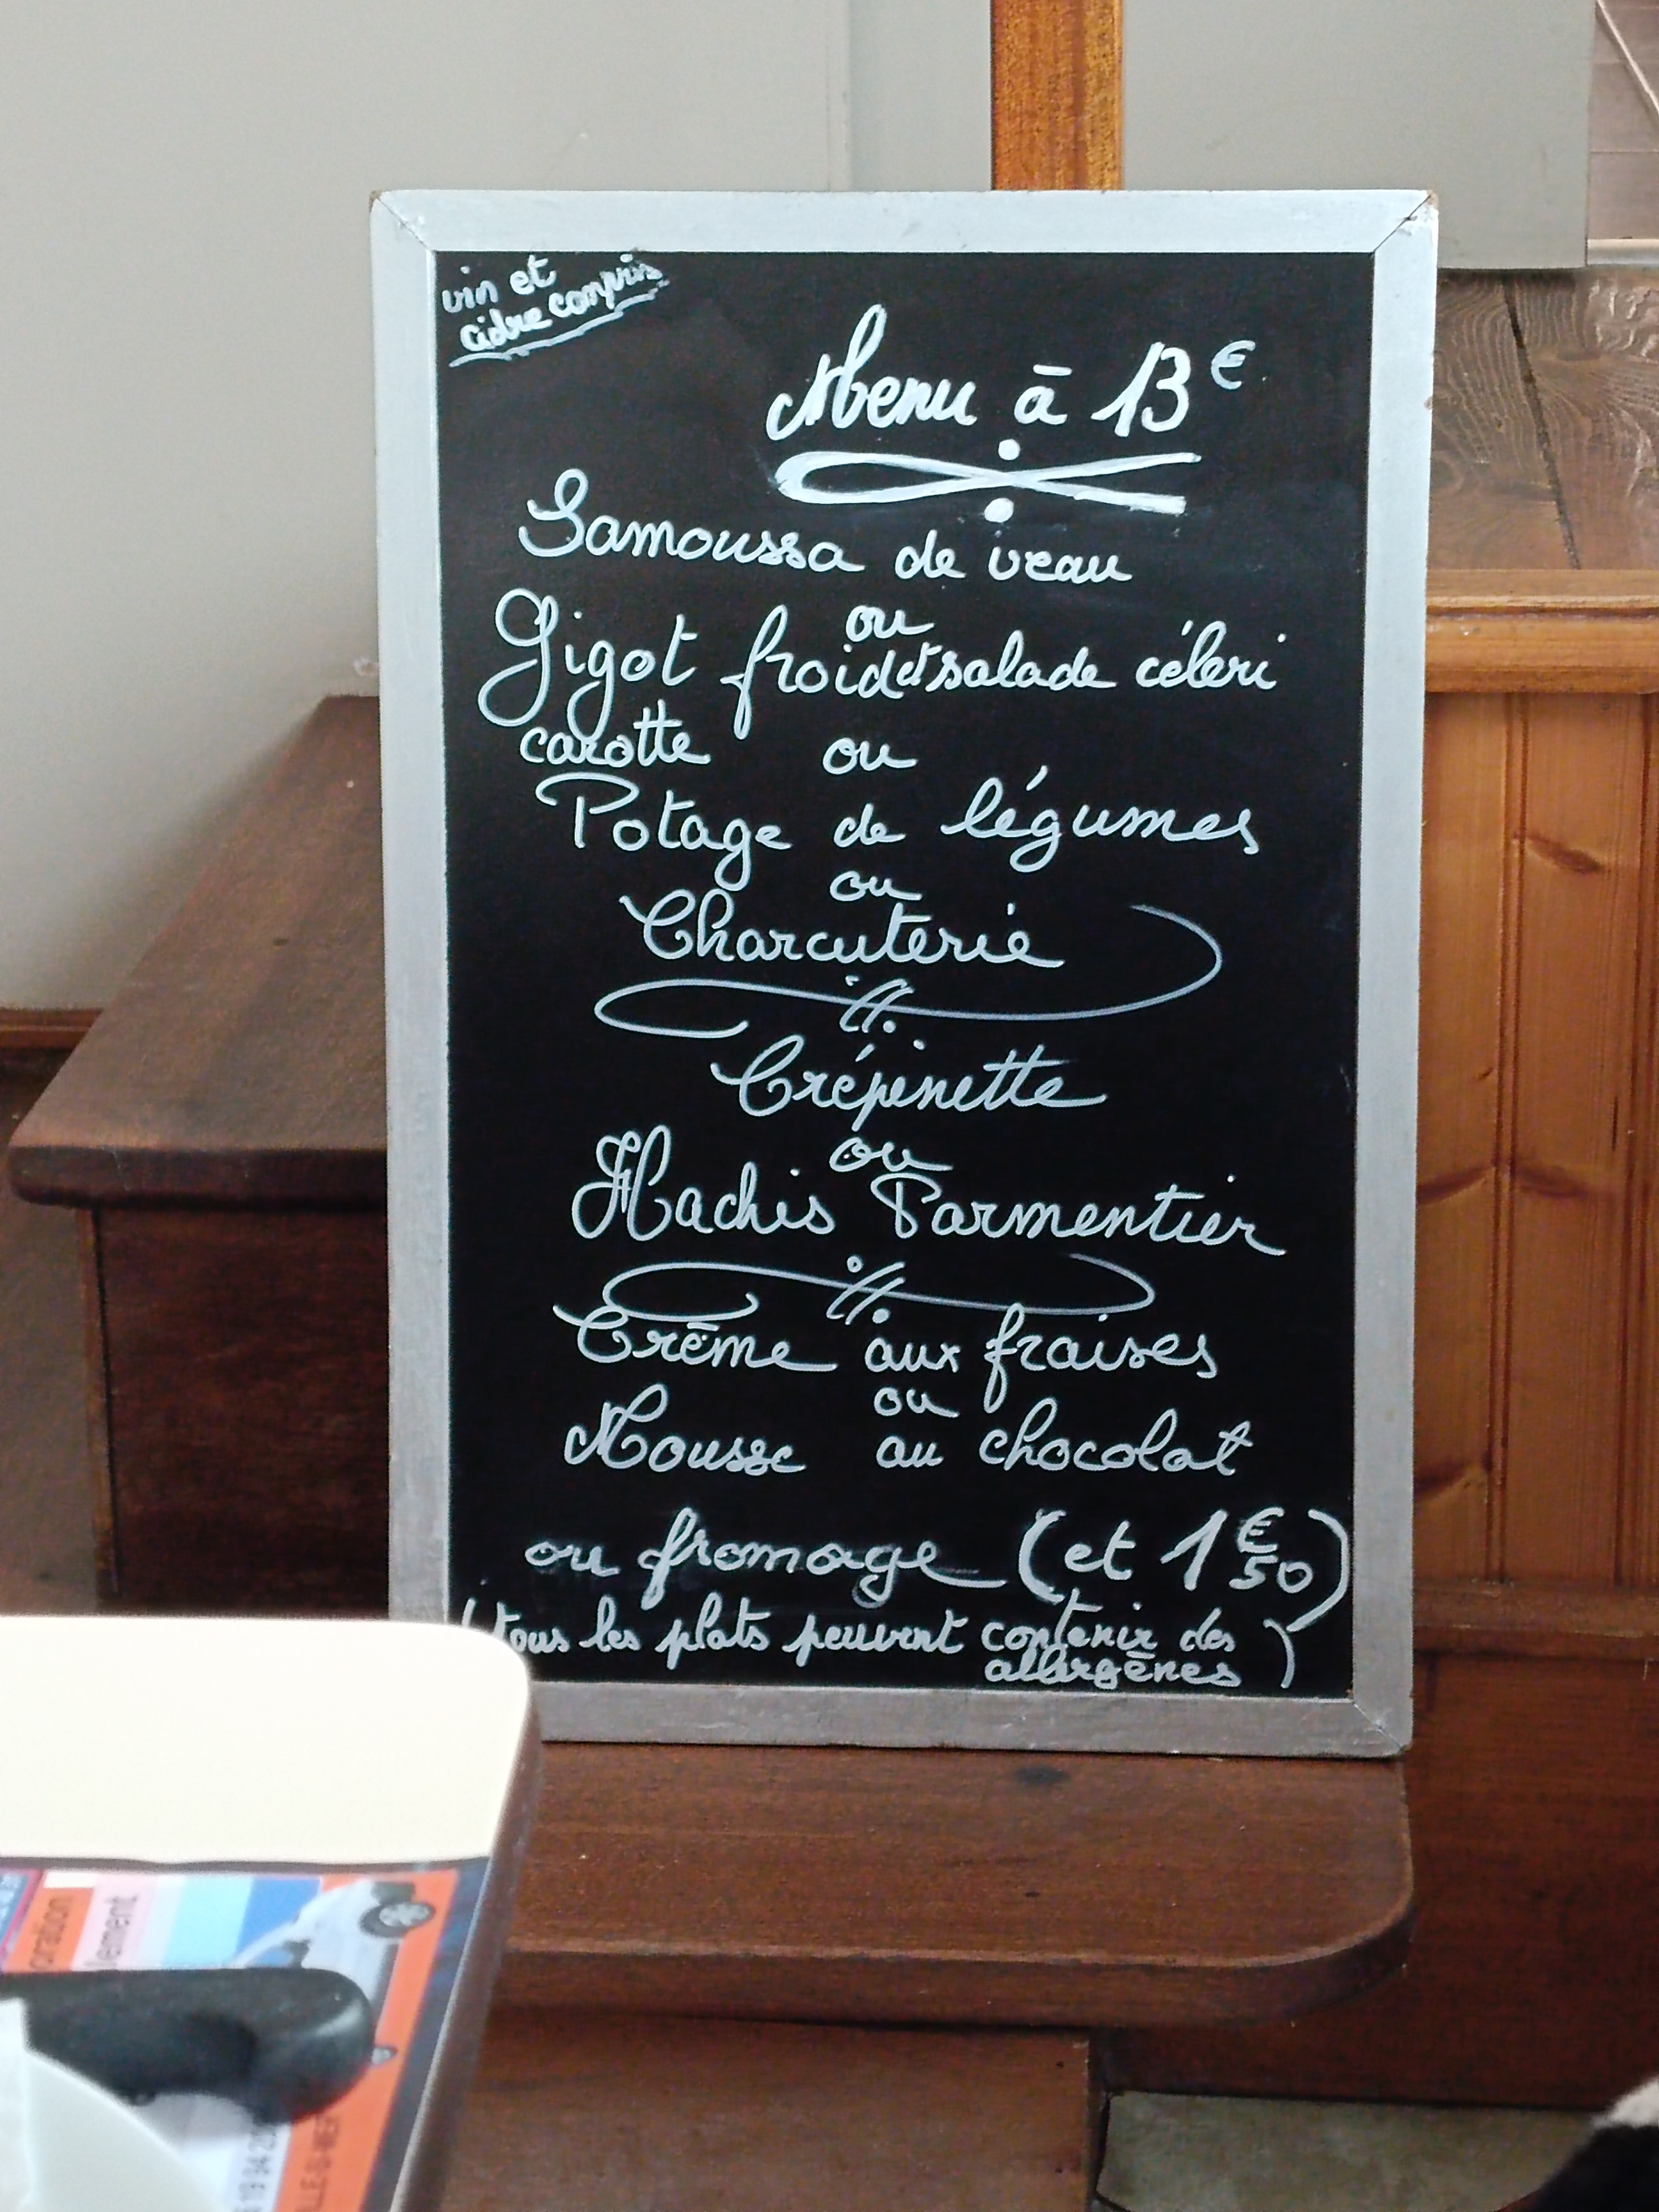 vin et
cidre compris
Menu à 13€
Samoussa de veau
ou
Gigot froid et salade céleri
carotte ou
Potage de légumes
ou
Charcuterie
Crépinette
ou
Hachis Parmentier
Crème aux fraises
ou
Mousse au chocolat
ou fromage (et 1€50)
(tous les plats peuvent contenir des
allergènes)
oration
lement